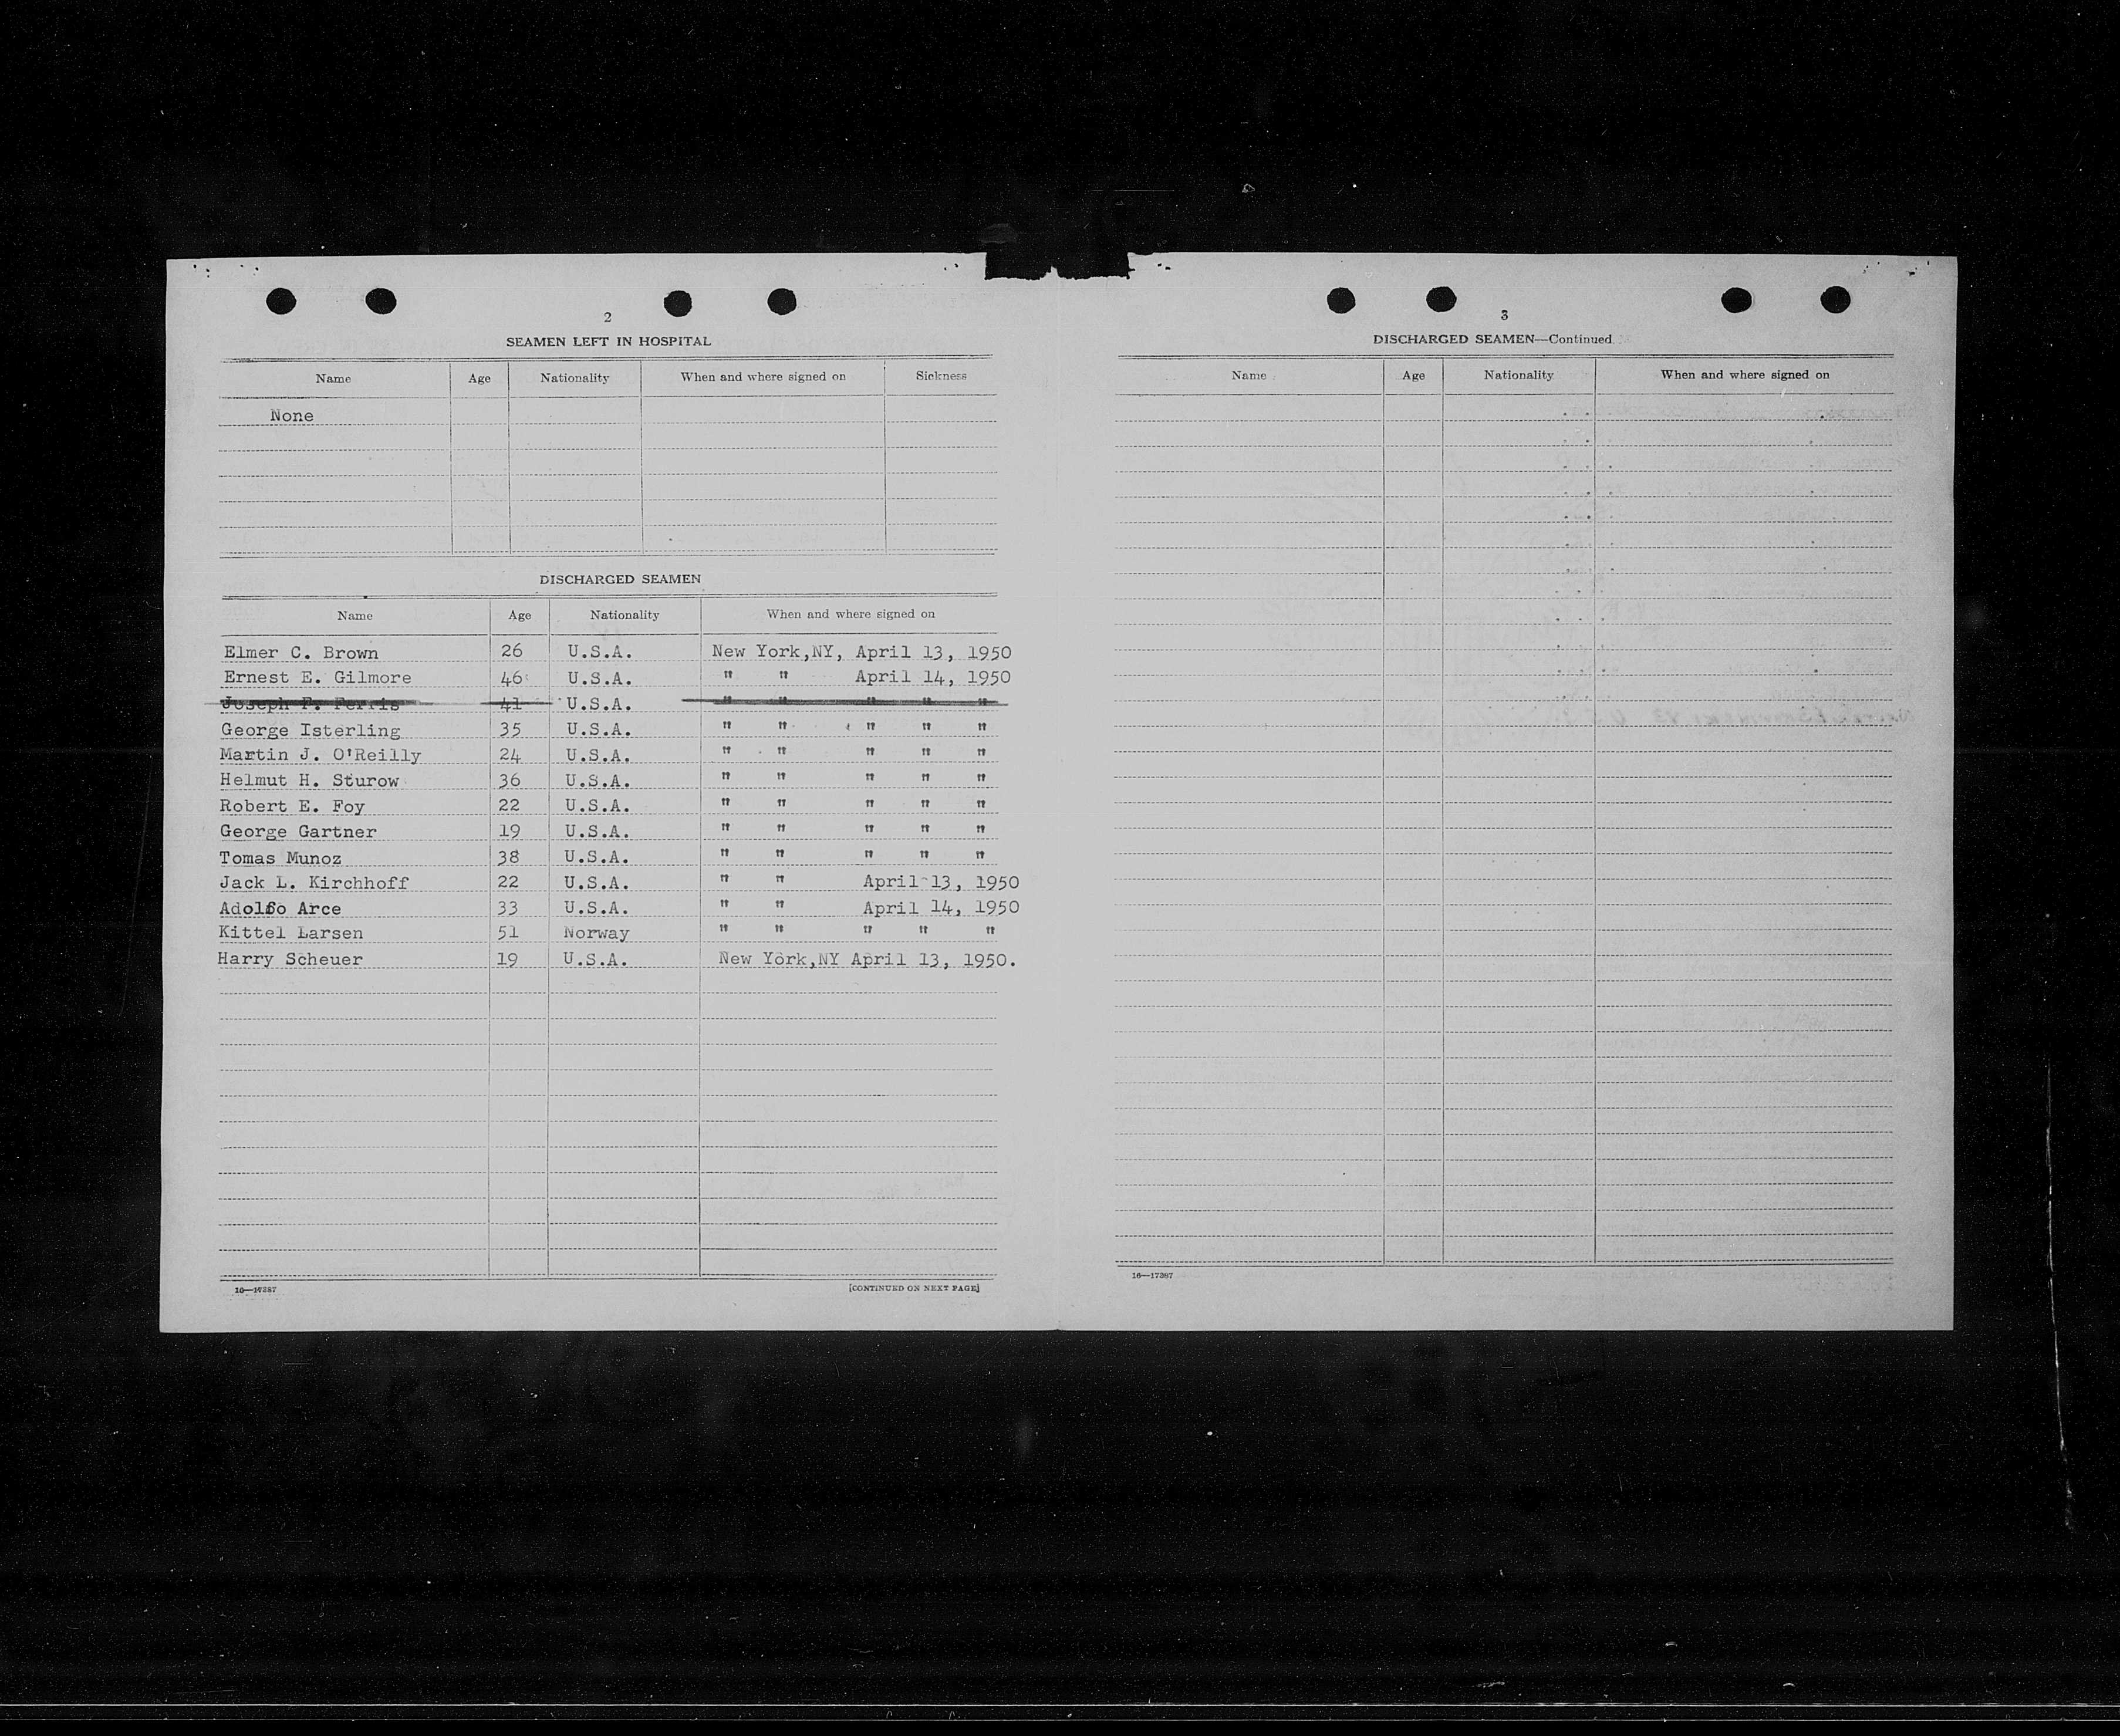 2
SEAMEN LEFT IN HOSPITAL
Name Age Nationality When and where signed on Sickness
None
DISCHARGED SEAMEN
Name Age Nationality When and where signed on
Elmer C. Brown 26 U.S.A. New York,NY, April 13, 1950
Ernest E. Gilmore 46 U.S.A. " " April 14, 1950
Joseph F. Ferris 41 U.S.A. " " " " "
George Isterling 35 U.S.A. " " " " "
Martin J. O'Reilly 24 U.S.A. " " " " "
Helmut H. Sturow 36 U.S.A. " " " " "
Robert E. Foy 22 U.S.A. " " " " "
George Gartner 19 U.S.A. " " " " "
Tomas Munoz 38 U.S.A. " " " " "
Jack L. Kirchhoff 22 U.S.A. " " April 13, 1950
Adolfo Arce 33 U.S.A. " " April 14, 1950
Kittel Larsen 51 Norway " " " " "
Harry Scheuer 19 U.S.A. New York,NY April 13, 1950.
16—17387 [CONTINUED ON NEXT PAGE]
3
DISCHARGED SEAMEN—Continued
Name Age Nationality When and where signed on
16—17387